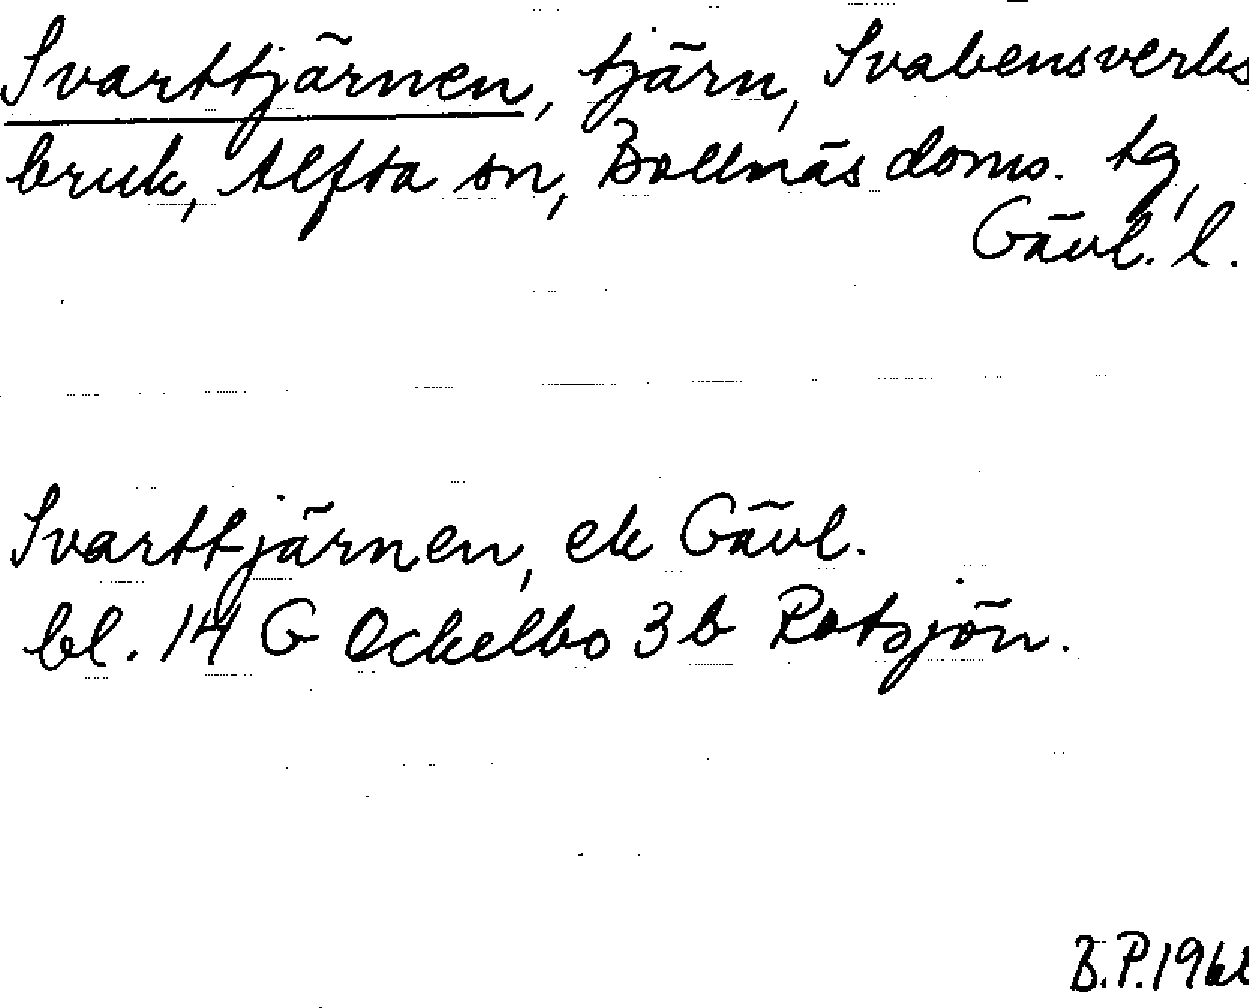 Svarttjärnen, tjärn, Svabensverks
bruk, Alfta sn, Bollnäs doms. tg,
Gävl. l.
Svarttjärnen, ek Gävl.
bl. 14 G Ockelbo 3 b Rotsjön.
B.P.